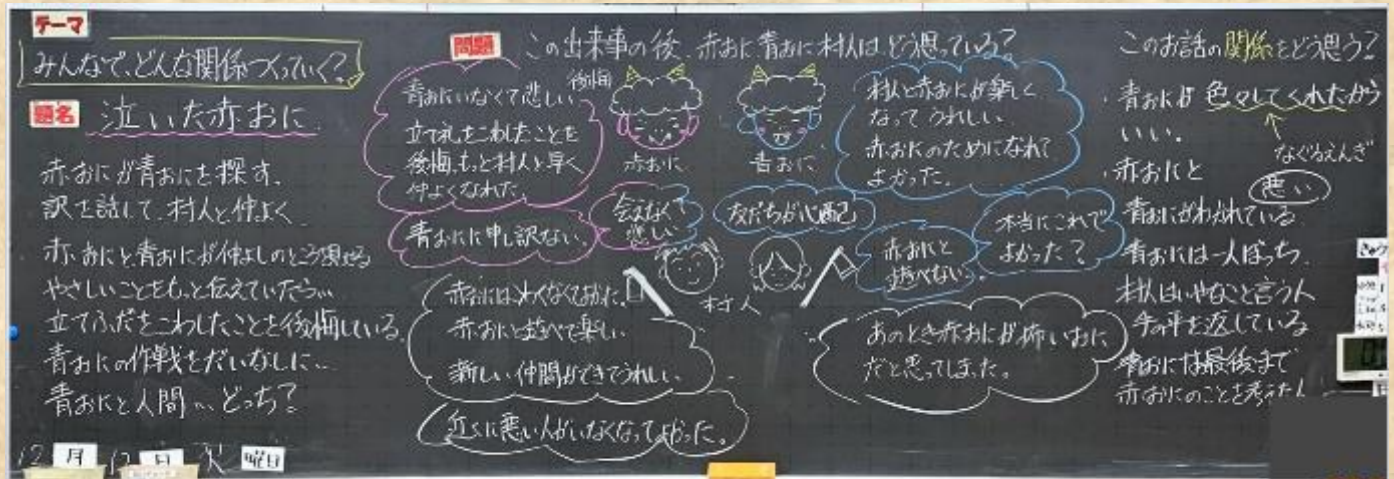 テーマ
みんなで、どんな関係つくっていく?
題名 泣いた赤おに
赤おにが青おにを探す。
訳を話して、村人と仲よく
赤おにと青おにが仲よしのところ見せる
やさしいことをもっと伝えていたら…
立てふだをこわしたことを後悔している。
青おにの作戦をだいなしに…
青おにと人間…どっち?
12月12日火曜日
問題 この出来事の後、赤おに青おに村人はどう思っている?
後悔
青おにいなくて悲しい
立て札をこわしたことを
後悔、もっと村人と早く
仲よくなれた
青おにに申し訳ない。
会えなくて
悲しい
赤おに
青おに
友だちが心配
村人と赤おにが楽しく
なってうれしい
赤おにのためになれて
よかった。
赤おにと
遊べない
本当にこれで
よかった?
村人
赤おにはわるくなくてよかった。
赤おにと遊べて楽しい
新しい仲間ができてうれしい
近くに悪い人がいなくなってよかった。
あのとき赤おにが怖いおに
だと思ってしまった。
このお話の関係をどう思う?
・青おにが色々してくれたから
いい。
なぐるえんぎ
悪い
・赤おにと
青おにがわかれている
青おには一人ぼっち
村人はいやなこと言う人
手の平を返している
青おには最後まで
赤おにのことを考えた